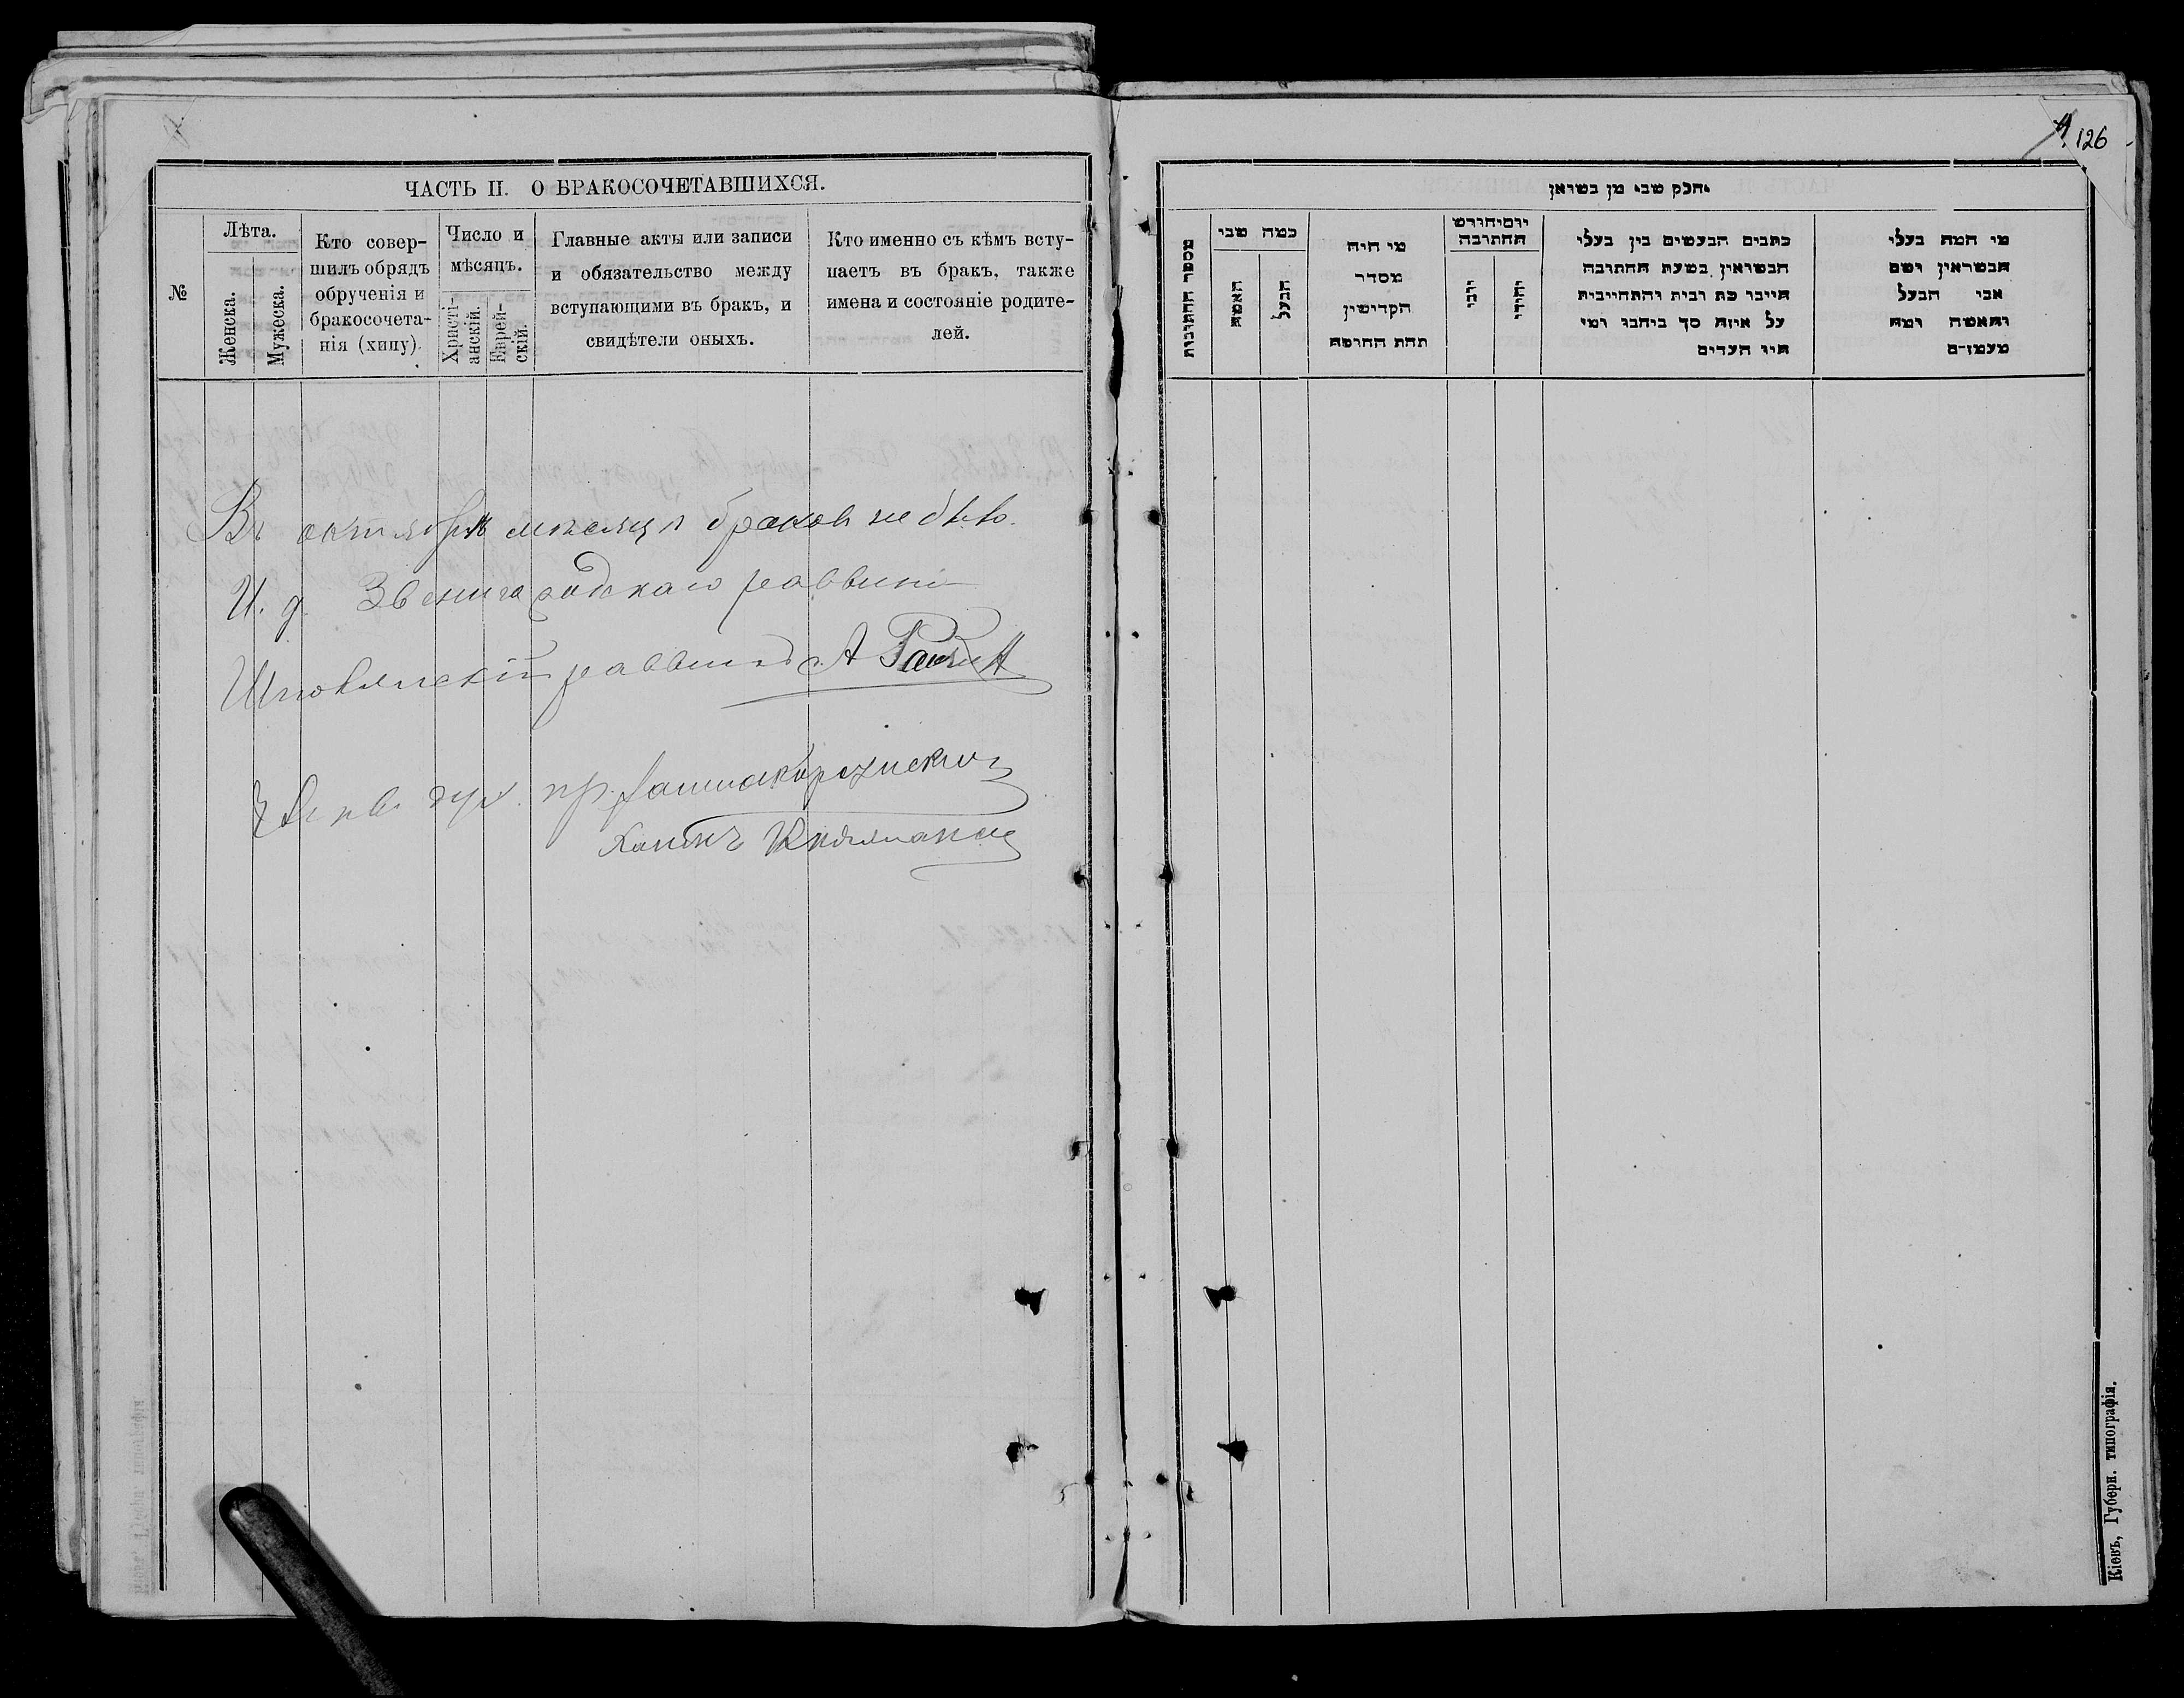 ЧАСТЬ II. О БРАКОСОЧЕТАВШИХСЯ.
№
Лѣта.
Женска.
Мужеска.
Кто совер-
шилъ обрядъ
обрученія и
бракосочета-
нія (хипу).
Число и
мѣсяцъ.
Христі-
анскій.
Еврей-
скій.
Главные акты или записи
и обязательство между
вступающими въ бракъ, и
свидѣтели оныхъ.
Кто именно съ кѣмъ всту-
паетъ въ бракъ, также
имена и состояніе родите-
лей.
Въ октябрѣ мѣсяцѣ браковъ не было.
И. д. Звенигородскаго раввина
Шполянскій раввинъ А
126
חלק שני מן נשואין
מספר החתונות
כמה שני
האשה
הבעל
מי היה
מסדר
הקדישין
תחת החופה
יום וחודש
החתונה
יוני
יהודי
כתבים הנעשים בין בעלי
הנשואין בשעת החתונה
על איזה סך ביהבו ומי
היו העדים
מי המה בעלי
הנשואין ושם
אבי הבעל
והאשה ומה
מעמדם
Кіевъ, Губерн. типографія.